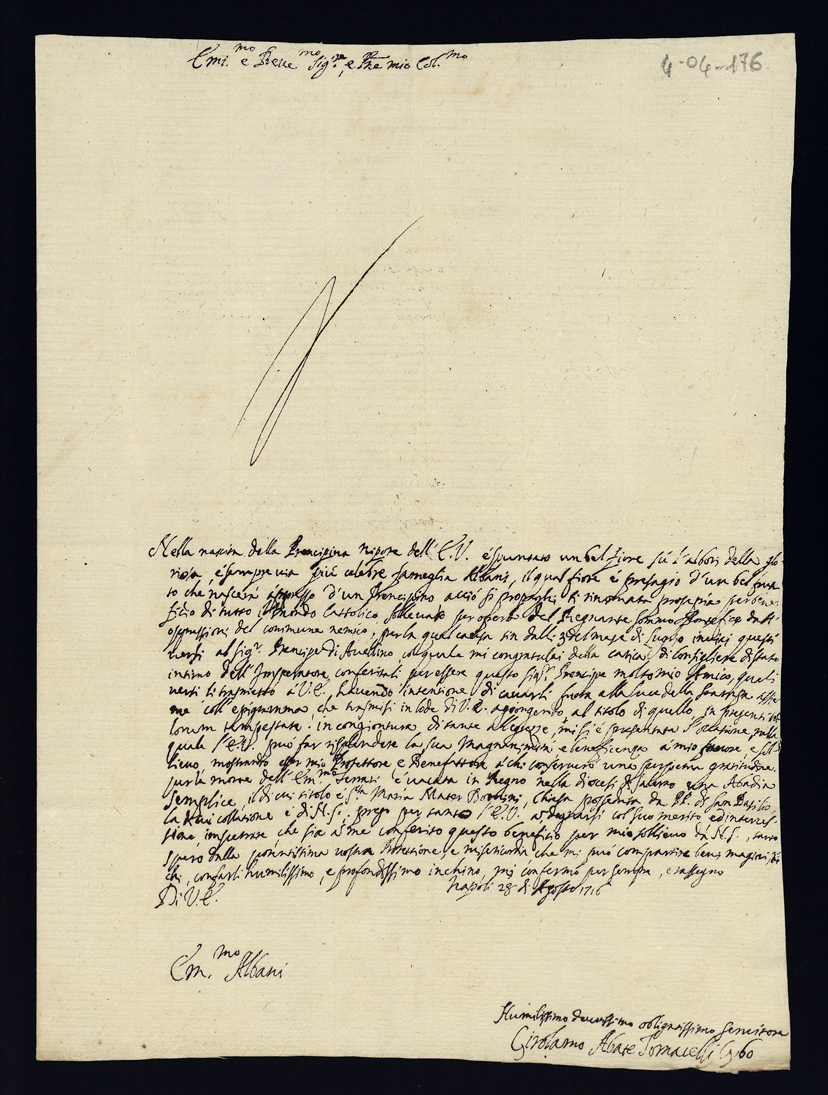 Emi.mo e Reve.mo Sig.re, e Pne mio Col.mo
4-04-176
Nella nascita della Prencipina Nipote dell'E.V. è spuntato un bel fiore sù l'albori della glo-
riosa, e sempre via più celebre famiglia Albani, il qual fiore è presagio d'un bel frut-
to che nascerà appresso d'un Prencipino acciò si propaghi la rinomata prosapia per bene-
ficio di tutto il Mondo Cattolico sollevato per opera del Regnante Sommo Pontefice da
oppressioni del comune nemico, per la qual causa sin dalli 3 del mese di luglio inviai questi
versi al Sig.r Prencipe di Avellino col quale mi congratulai della carica di Consigliere di stato
intimo dell'Imperatore conferitali per essere questo Sig.r Prencipe molto mio Amico, quali
versi li trasmetto à V.E. havendo intentione di cavarli fuora alla luce della stampa assie-
me coll'epigramma, che trasmisi in lode di V.E. aggongendo al titolo di quello, in presenti
lorum tempestate: in congiontura di tante allegrezze, mi si è presentata l'occasione, nella
quale l'E.V. può far risplendere la sua Magnanimità e beneficenza à mio favore, e sol-
lievo, mostrando esser mio Protettore e Benefattore à chi conserverò una perpetua gratitudine.
per la morte dell'Em.mo è vacata in Regno nella diocesi di Salerno una Abadia
Semplice, il di cui titolo è S.ta Maria Mater Domini, chiesa posseduta da PP. di San Basilio,
la cui collatione è di N.S., prego per tanto l'E.V. à degnarsi col suo merito, ed interces-
sione, impetrare che sia à me conferito questo beneficio per mio sollievo da N.S., tanto
spero dalla potentissima vostra Protettione, e misericordia che mi può compartire
chi, con farli humilissimo, e profondissimo inchino, mi confermo per sempre, e rassegno
Di V.E. Napoli 28 di Agosto 1716
Em.mo Albani
Humilissimo devotissimo obligatissimo servitore
Girolamo Abate Tomacelli Cybo